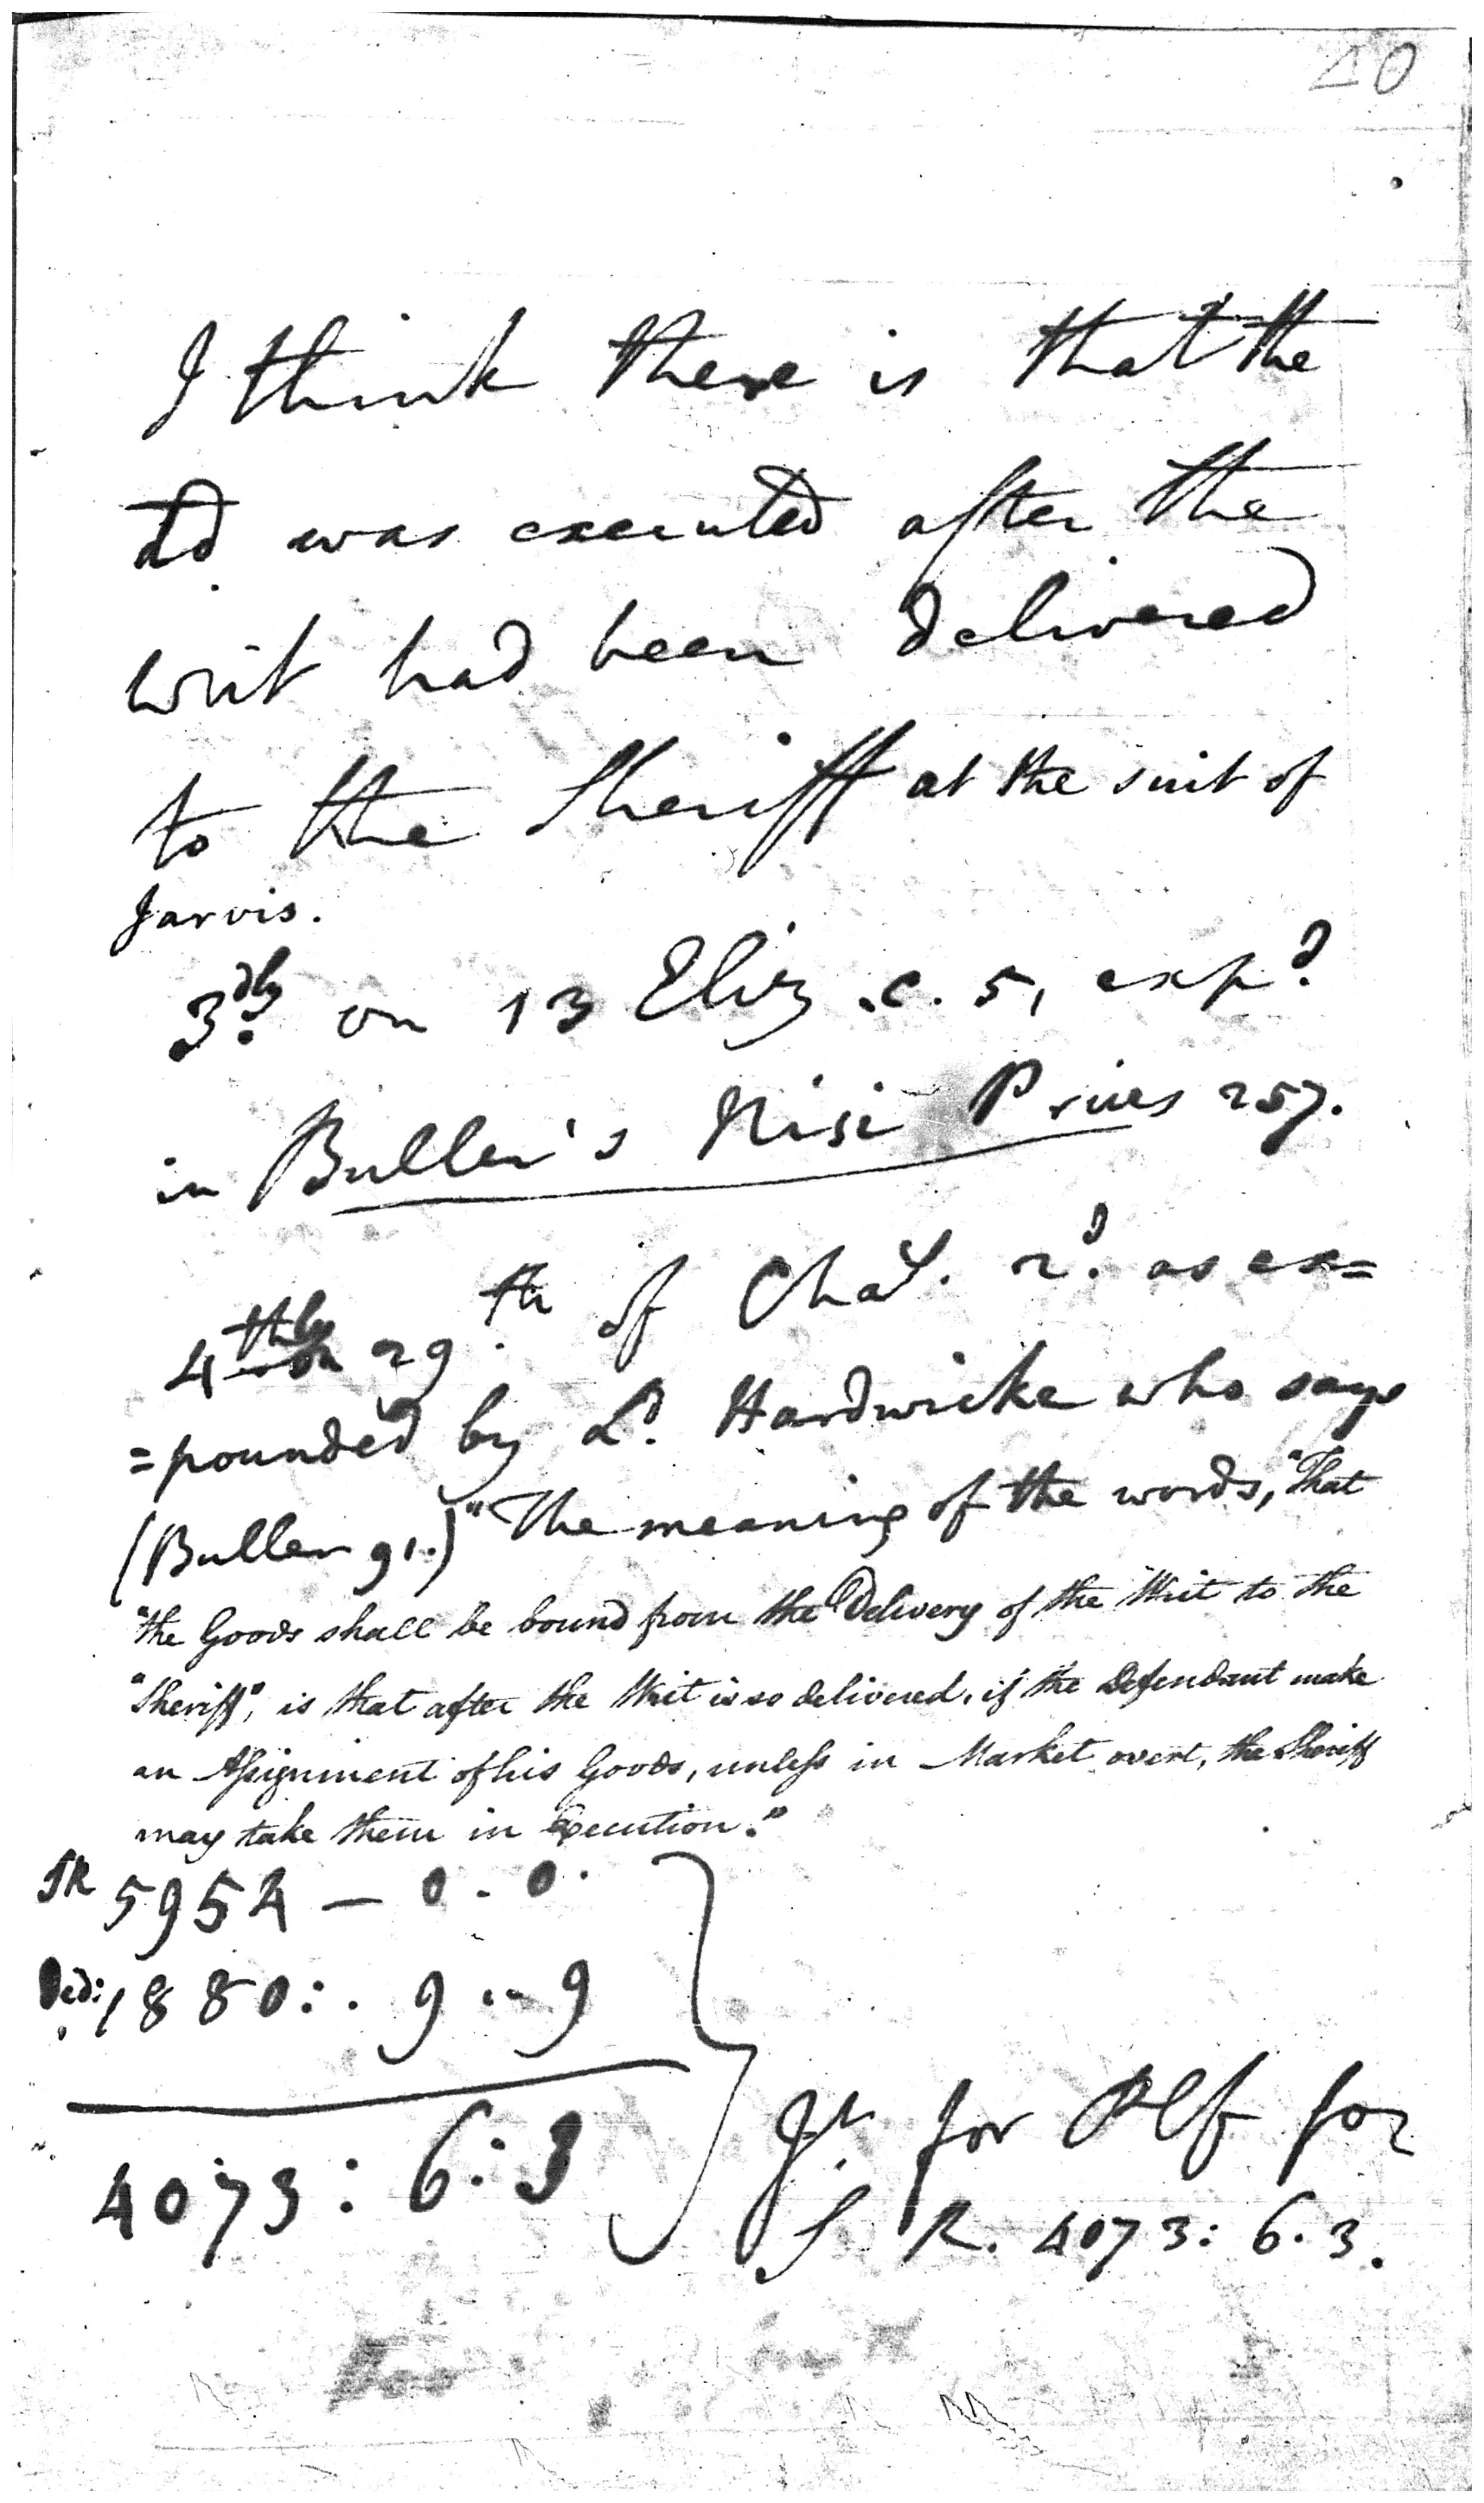 40
I think there is that the
dd was executed after the
writ had been delivered
to the Sheriff at the suit of
Jarvis.
3dly. on 13 Eliz. c. 5, expd.
in Buller's Nisi Prius 257.
4thly on 29th. of Chas. 2d. as ex=
=pounded by Ld. Hardwicke who says
(Buller 91.) "The meaning of the words, "That
"the Goods shall be bound from the Delivery of the Writ to the
"Sheriff", is that after the Writ is so delivered, if the Defendant make
an Assignment of his Goods, unless in Market overt, the Sheriff
may take them in Execution."
SR 5954 — 0 . 0.
Ded: 1880: . 9 .. 9
4073 : 6 : 3
Jt. for Plf for
S R. 4073: 6. 3.